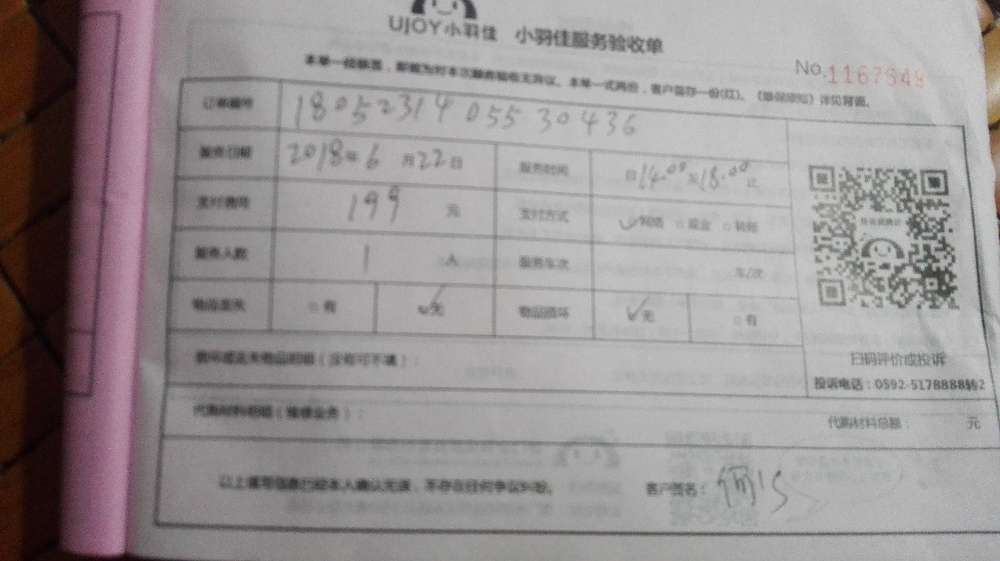 UJOY小羽佳 小羽佳服务验收单
No.1167949
本单一经签署，即视为对本次服务验收无异议。本单一式两份，客户留存一份(红)。《服务须知》详见背面。
订单编号 18052314055 30436
服务日期 2018年6月22日 服务时间 自14:00至18:00止
支付费用 199 元 支付方式 ✓网络 □现金 □转账
服务人数 1 人 服务车次 车/次
物品丢失 □有 ✓无 物品损坏 ✓无 □有
损坏或丢失物品明细（没有可不填）：
扫码评价或投诉
投诉电话：0592-5178888
代购材料明细（维修业务）： 代购材料总额： 元
以上填写信息已经本人确认无误，不存在任何争议纠纷。 客户签名：